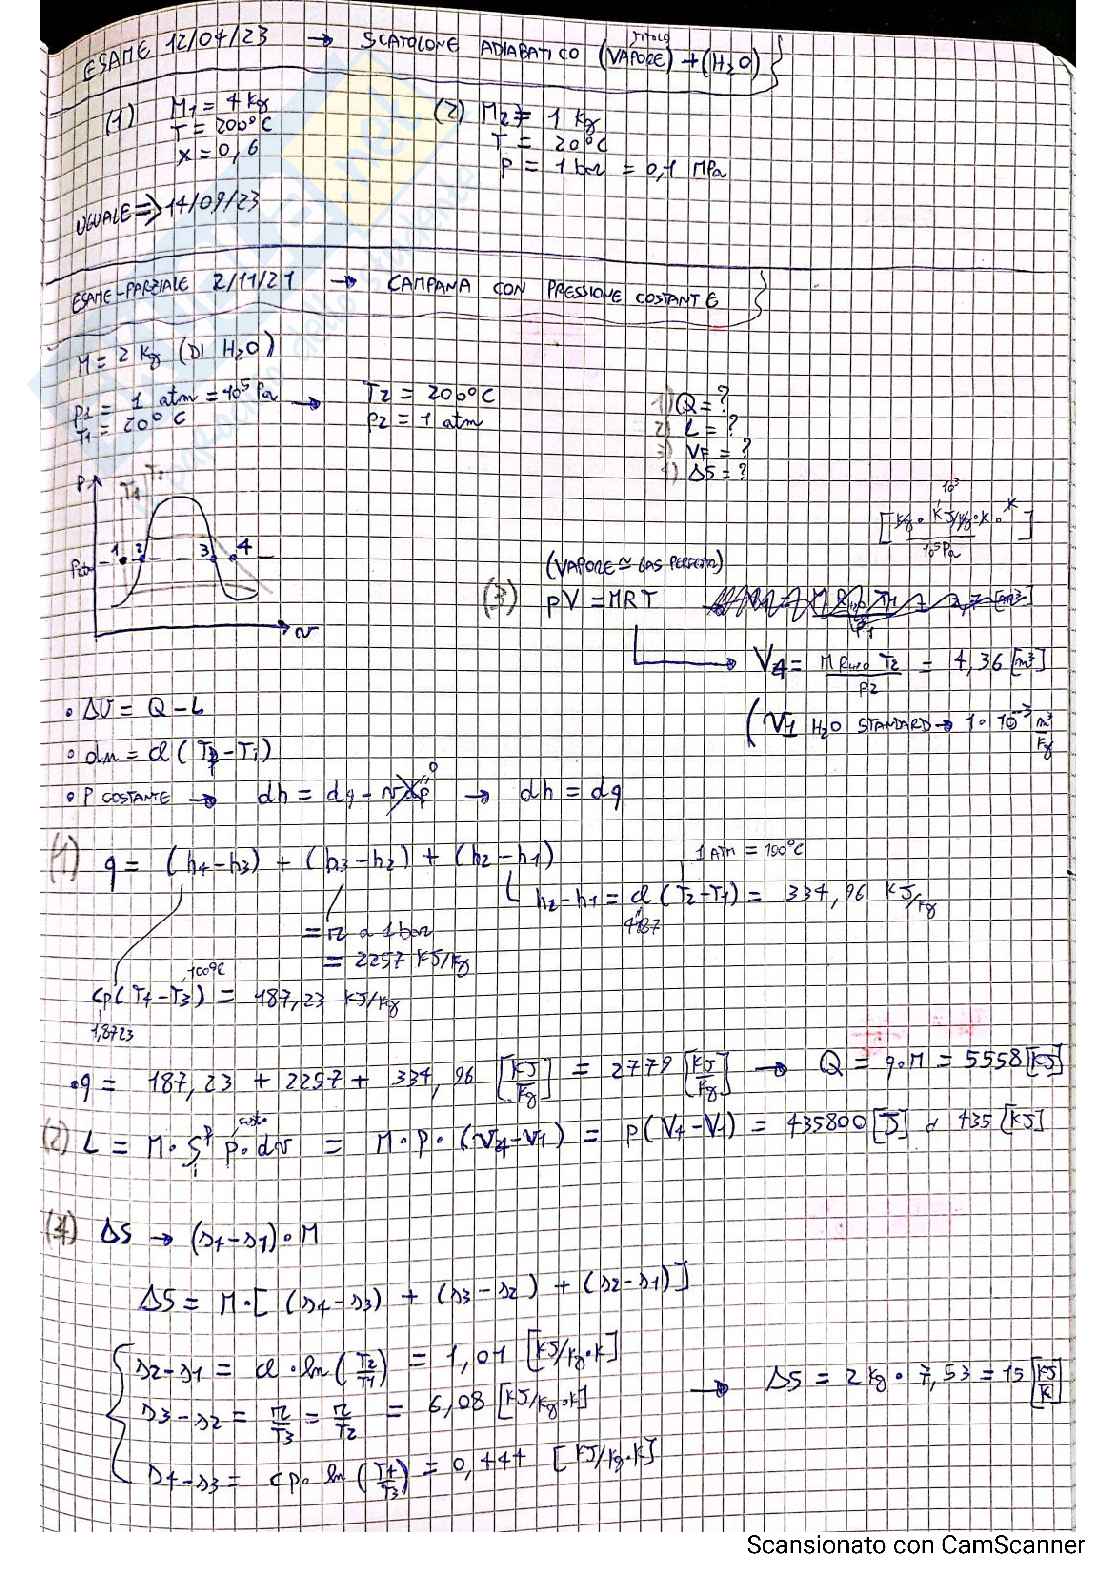 ESAME 12/04/23 → SCATOLONE ADIABATICO (VAPORE) + (H2O)
TITOLO
(1) M1 = 4 Kg
T = 200°C
X = 0,6
(2) M2 = 1 Kg
T = 20°C
P = 1 bar = 0,1 MPa
UGUALE ⇒ 14/09/23
ESAME-PARZIALE 2/11/21 → CAMPANA CON PRESSIONE COSTANTE
M = 2 Kg (DI H2O)
P1 = 1 atm = 10^5 Pa → T2 = 200°C
T1 = 20°C P2 = 1 atm
1) Q = ?
2) L = ?
3) VF = ?
4) ΔS = ?
P
1 2 3 4
v
[Kg · KJ/Kg·K · K]
10^3
10^5 Pa
(VAPORE ≃ GAS PERFETTO)
(3) PV = MRT
V4 = M RH2O T2 / P2 = 4,36 [m³]
(V1 H2O STANDARD → 1·10^-3 m³/Kg
• ΔU = Q - L
• du = cl (TF - Ti)
• P COSTANTE → dh = dq - vdp → dh = dq
0
(1) q = (h4 - h3) + (h3 - h2) + (h2 - h1)
1 ATM = 100°C
h2 - h1 = cl (T2 - T1) = 334,96 KJ/Kg
4187
= r a 1 bar
= 2257 KJ/Kg
100°C
cp(T4 - T3) = 187,23 KJ/Kg
1,8723
• q = 187,23 + 2257 + 334,96 [KJ/Kg] = 2779 [KJ/Kg] → Q = q·M = 5558 [KJ]
(2) L = M · ∫ p · dv = M · P · (v4 - v1) = P(V4 - V1) = 435800 [J] o 435 [KJ]
(4) ΔS → (s4 - s1) · M
ΔS = M · [(s4 - s3) + (s3 - s2) + (s2 - s1)]
s2 - s1 = cl · ln (T2/T1) = 1,01 [KJ/Kg·K]
s3 - s2 = r/T3 = r/T2 = 6,08 [KJ/Kg·K] → ΔS = 2 Kg · 7,53 = 15 [KJ/K]
s4 - s3 = cp · ln (T4/T3) = 0,444 [KJ/Kg·K]
Scansionato con CamScanner